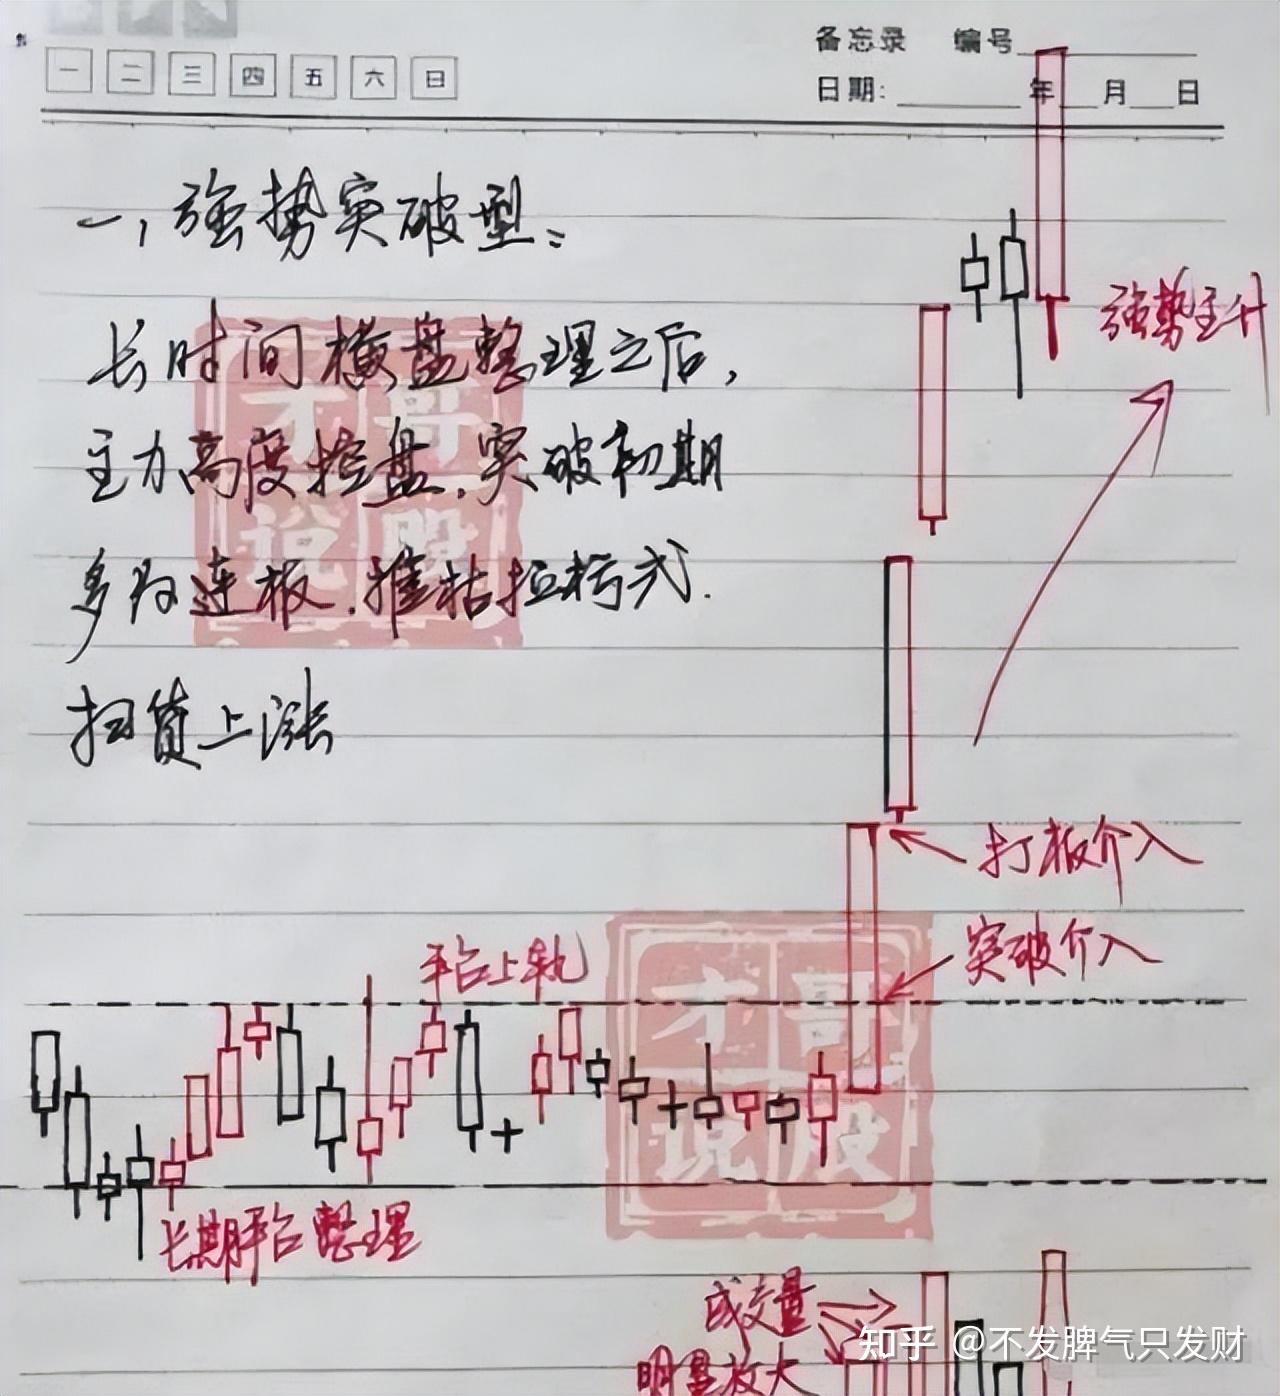 备忘录 编号
一 二 三 四 五 六 日
日期: 年 月 日
一，强势突破型：
长时间横盘整理之后，
主力高度控盘，突破初期
多为连板，摧枯拉朽式.
扫货上涨
强势主升
打板介入
突破介入
平台上轨
长期平台整理
才哥
说股
才哥
说股
成交量
明显放大
知乎 @不发脾气只发财